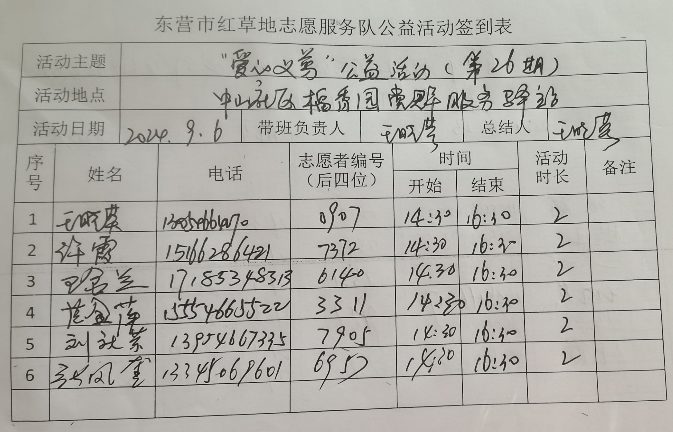 东营市红草地志愿服务队公益活动签到表
活动主题 "爱心义剪"公益活动(第26期)
活动地点 中山社区稻香园党群服务驿站
活动日期 2024.9.6 带班负责人 王晓燕 总结人 王晓燕
序号 姓名 电话 志愿者编号(后四位) 时间 开始 结束 活动时长 备注
1 0907 14:30 16:30 2
2 许霞 15166286421 7372 14:30 16:30 2
3 17185348313 6140 14:30 16:30 2
4 15554665522 3311 14:30 16:30 2
5 13954667335 7905 14:30 16:30 2
6 13345069601 6957 14:30 16:30 2